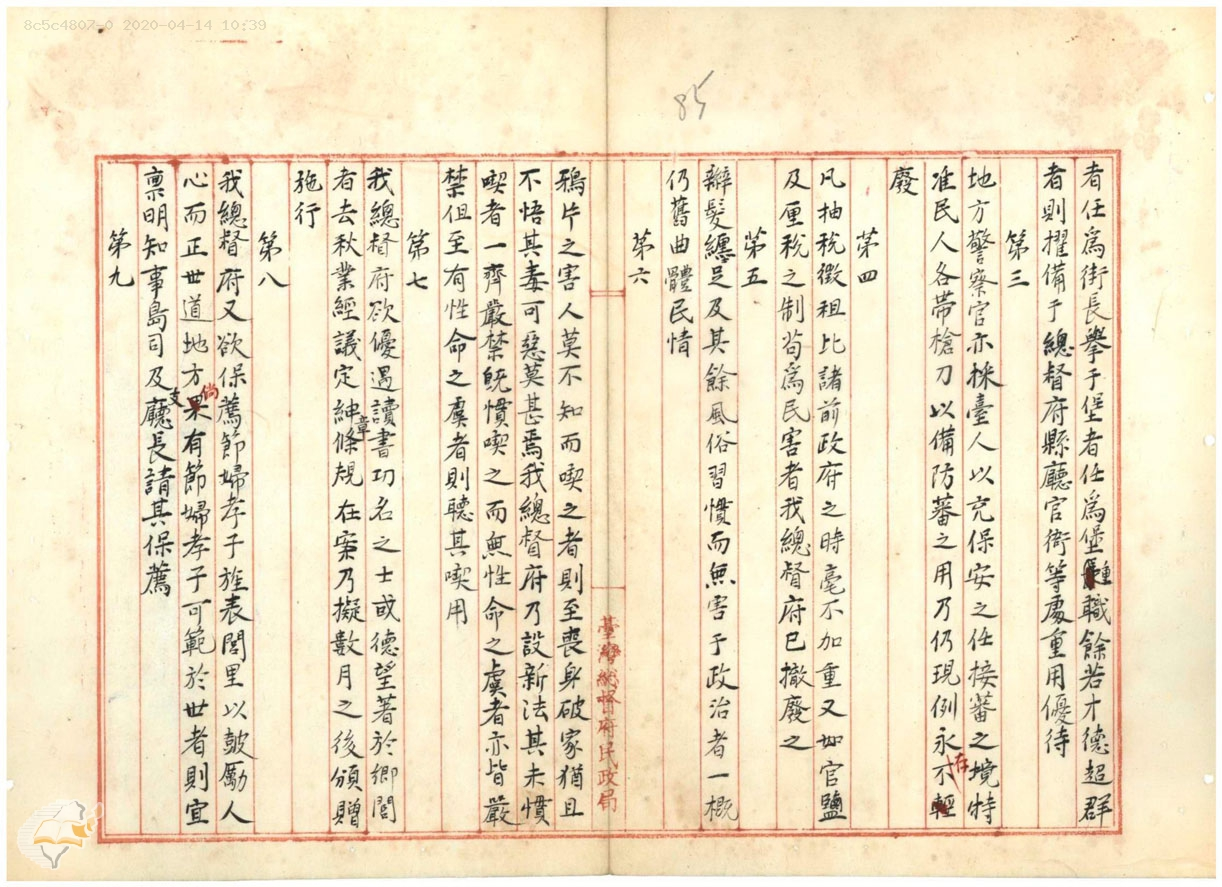 8c5c4807-0 2020-04-14 10:39
85
者任爲街長擧于堡者任爲堡職餘若才德超群
者則擢備于總督府縣廳官衙等處重用優待
第三
地方警察官亦採臺人以充保安之任接蕃之境特
准民人各帶槍刀以備防蕃之用乃仍現例永不在輕
廢
第四
凡抽稅徵租比諸前政府之時毫不加重又如官鹽
及厘稅之制苟爲民害者我總督府已撤廢之
第五
辮髮纏足及其餘風俗習慣而無害于政治者一概
仍舊曲體民情
第六
臺灣總督府民政局
鴉片之害人莫不知而喫之者則至喪身破家猶且
不悟其毒可惡莫甚焉我總督府乃設新法其未慣
喫者一齊嚴禁旣慣喫之而無性命之虞者亦皆嚴
禁但至有性命之虞者則聽其喫用
第七
我總督府欲優遇讀書功名之士或德望著於鄉閭
者去秋業經議定紳章條規在案乃擬數月之後頒贈
施行
第八
我總督府又欲保薦節婦孝子旌表閭里以皷勵人
心而正世道地方倘果有節婦孝子可範於世者則宜
禀明知事島司及支廳長請其保薦
第九